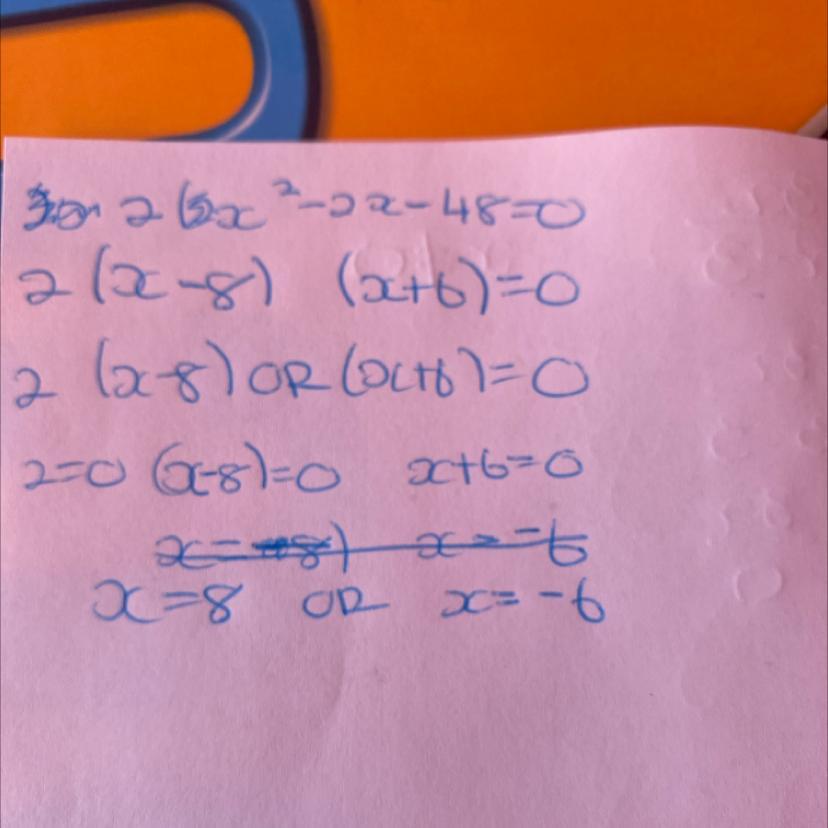 2(x²-2x-48=0
2(x-8) (x+6)=0
2 (x-8) OR (x+6)=0
2=0 (x-8)=0 x+6=0
x=-8) x=-6
x=8 OR x=-6